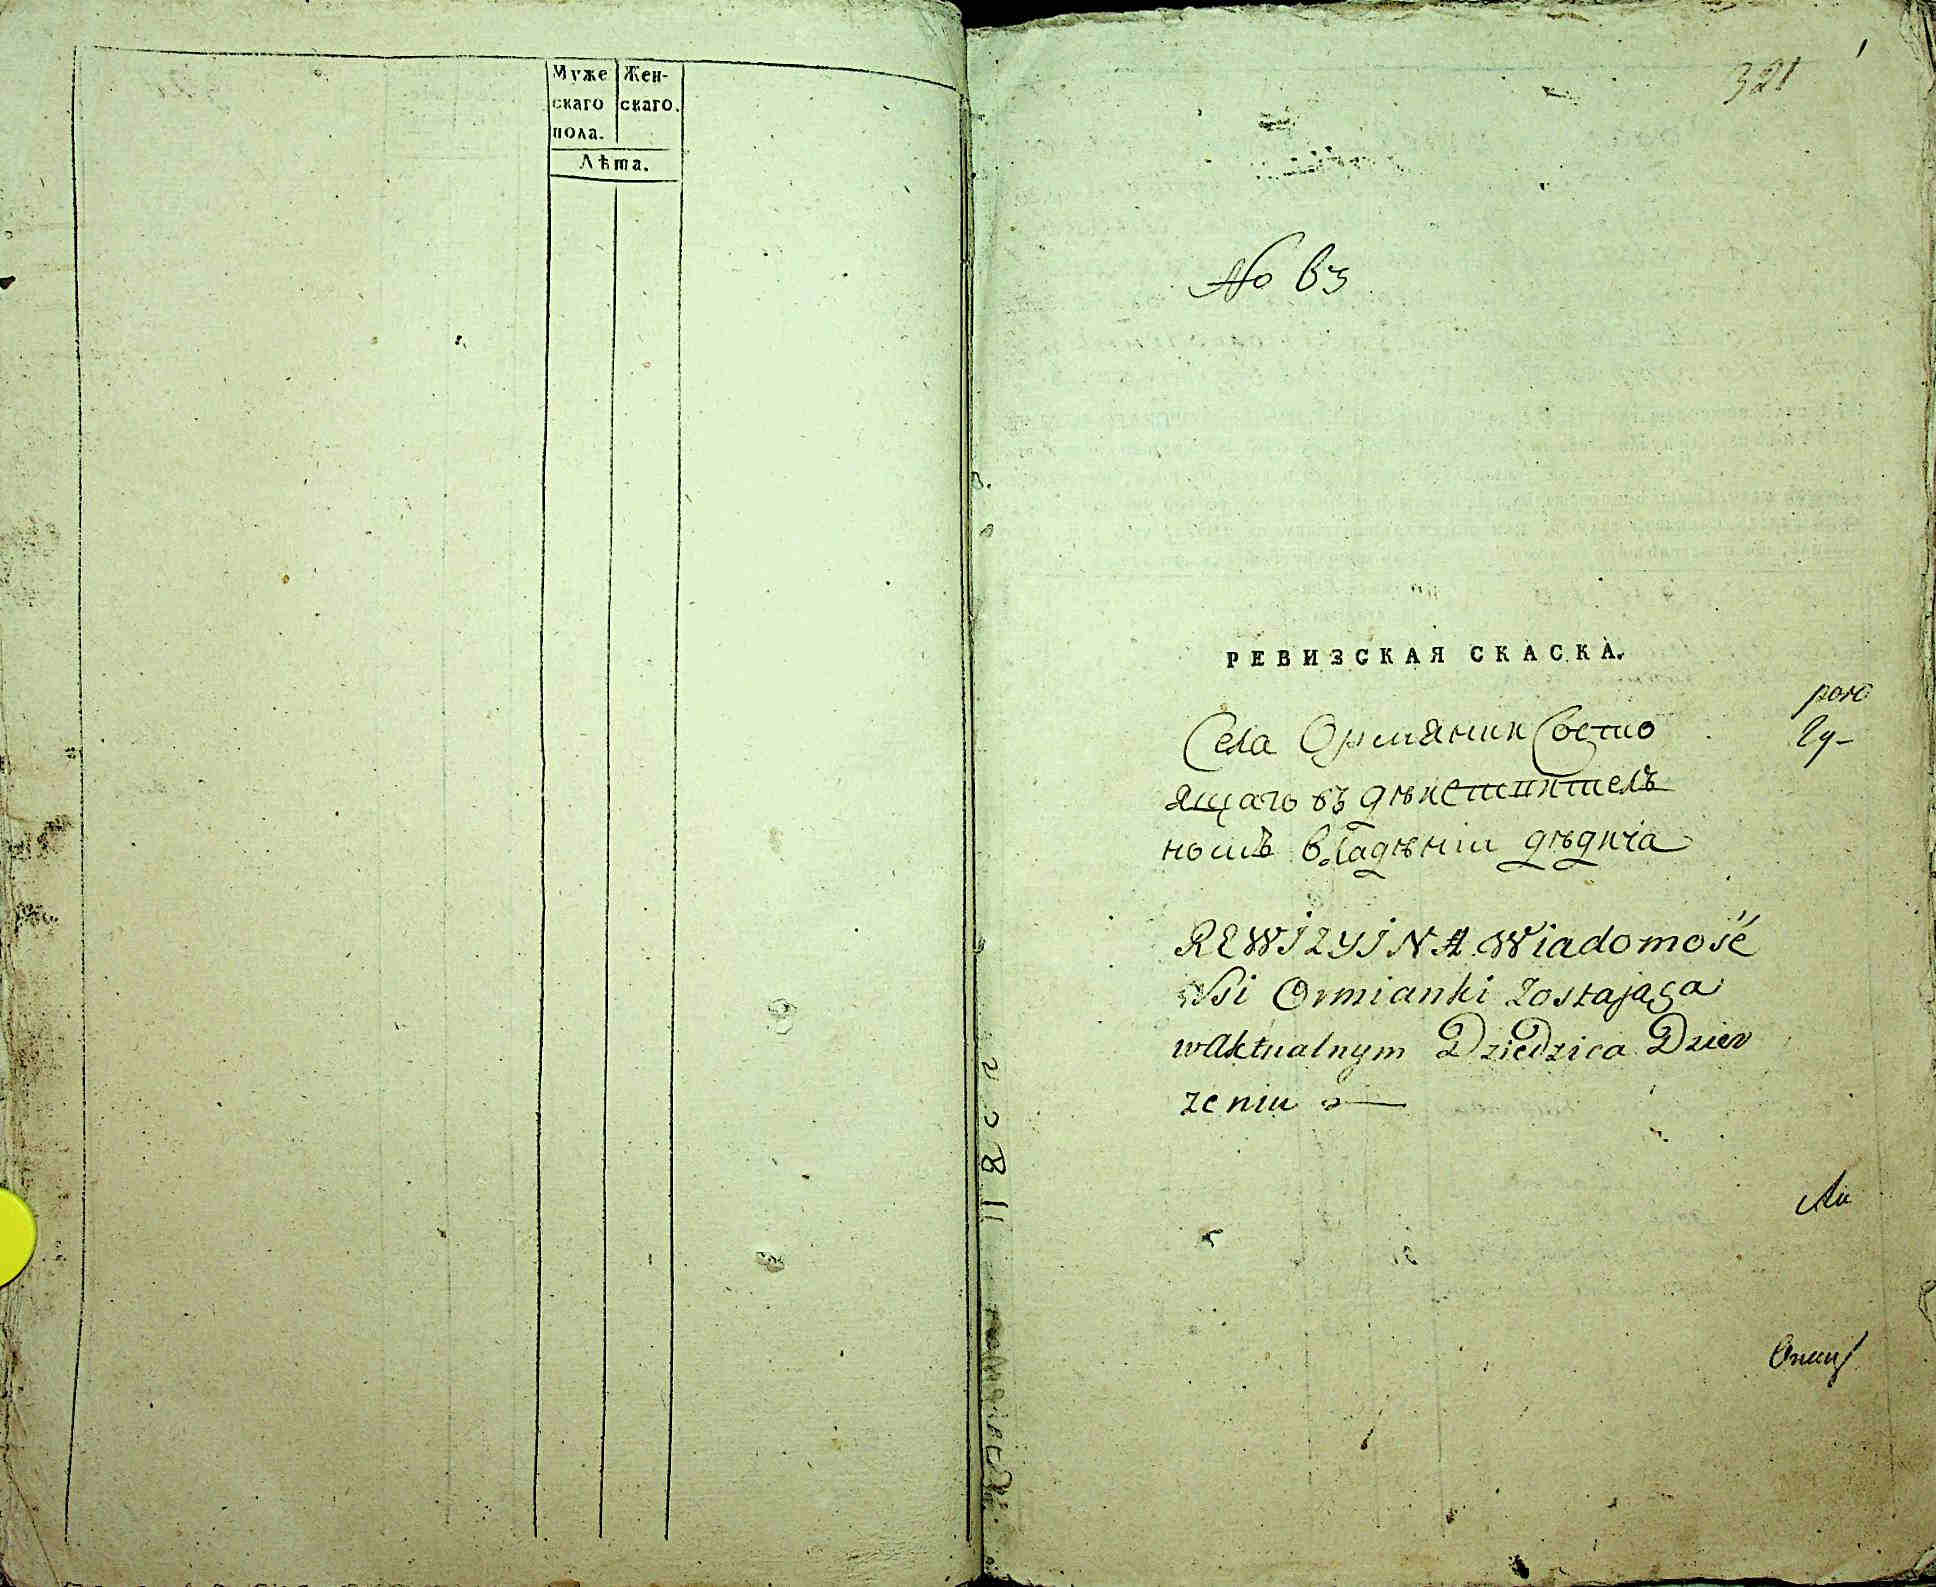 Муже Жен-
скаго скаго.
пола.
Лѣта.
321
No 63
РЕВИЗСКАЯ СКАСКА.
Села Ормянки Состо
ящаго въ дѣйствитель
номъ владѣнии дѣдича
REWIZYINA Wiadomość
Wsi Ormianki Zostająca
w Aktualnym Dziedzica Dzier
zeniu